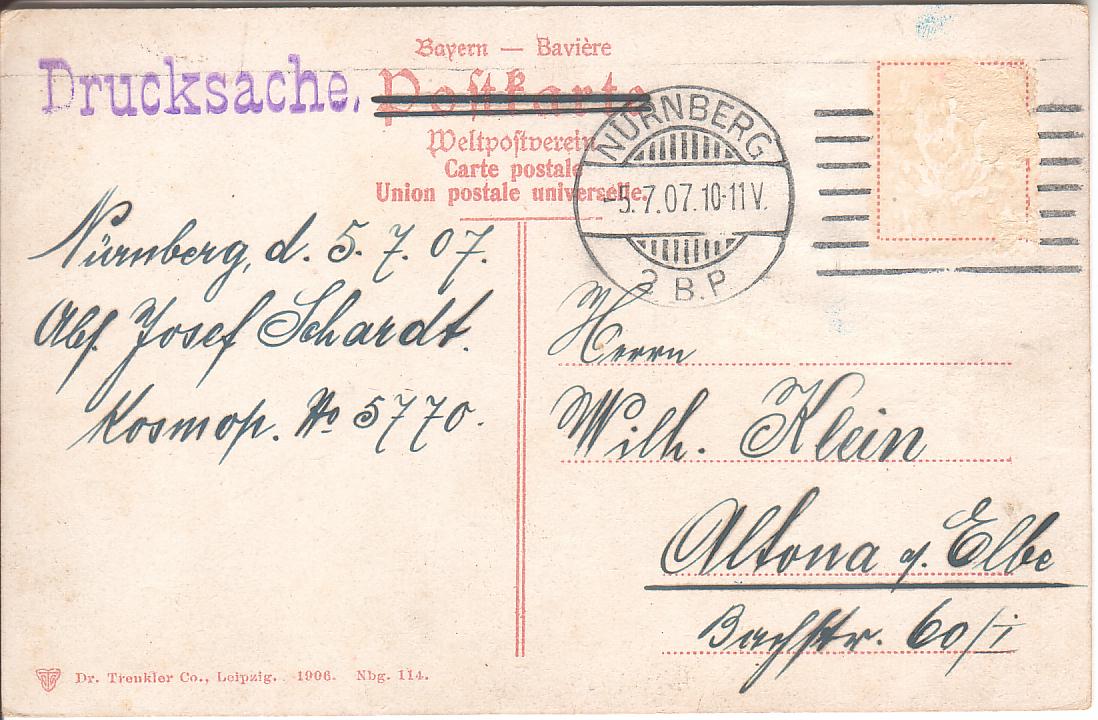 Bayern — Bavière
Drucksache.
Postkarte
Weltpostverein
Carte postale
Union postale universelle.
NÜRNBERG
-5.7.07.10-11V.
2 B.P.
Nürnberg, d. 5. 7. 07.
Abs. Josef Schardt.
Kosmop. No 5770.
Herrn
Wilh. Klein
Altona a. Elbe
Bachstr. 60/I
Dr. Trenkler Co., Leipzig. 1906. Nbg. 114.